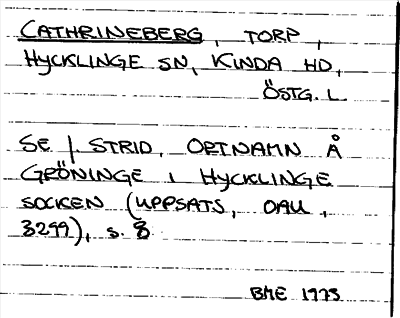 CATHRINEBERG, TORP,
HYCKLINGE SN, KINDA HD,
ÖSTG. L.
SE J. STRID, ORTNAMN Å
GRÖNINGE I HYCKLINGE
SOCKEN (UPPSATS, OAU,
3299), s. 8
BME 1973